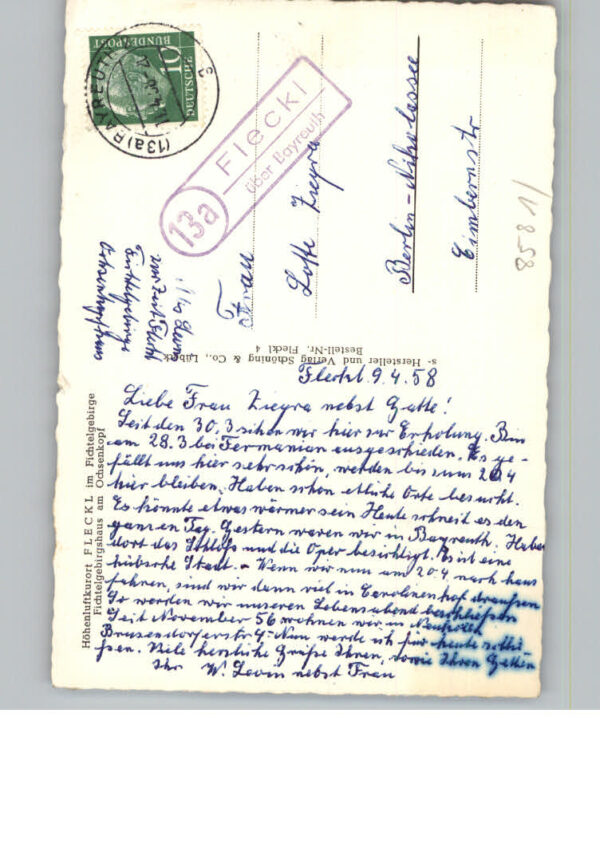 DEUTSCHE
BUNDESPOST
10
(13a) BAYREUTH
13a
Fleckl
über Bayreuth
Frau
Lotte Ziegra
Berlin-Nikolassee
8581/
zur Zeit Fleckl
Fichtelgebirge
s- Hersteller und Verlag Schöning & Co., Lübeck
Bestell-Nr. Fleckl 4
Höhenluftkurort FLECKL im Fichtelgebirge
Fichtelgebirgshaus am Ochsenkopf
Fleckl 9.4.58
Liebe Frau Ziegra nebst Gatte!
Seit den 30.3 sitzen wir hier zur Erholung. Bin
am 28.3 bei ausgeschieden. Es ge-
fällt uns hier sehr schön, werden bis zum 20 4
hier bleiben. Haben schon etliche Orte besucht.
Es könnte etwas wärmer sein Heute schneit es den
ganzen Tag. Gestern waren wir in Bayreuth. Habe
dort das Schloß und die Oper besichtigt. Es ist eine
hübsche Stadt. - Wenn wir nun am 20.4. nach haus
fahren, sind wir dann viel in Carolinenhof draußen
So werden wir unseren Lebensabend beschließen
Seit November 56 wohnen wir in Neukölln
4. Nun werde ich für heute schli-
ßen. Viele herzliche Grüße Ihnen, sowie Ihren Gatten
Ihr W. Levin nebst Frau